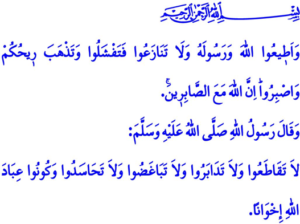 بِسْمِ اللهِ الرَّحْمٰنِ الرَّحِيمِ
وَاَطِيعُوا اللهَ وَرَسُولَهُ وَلَا تَنَازَعُوا فَتَفْشَلُوا وَتَذْهَبَ رِيحُكُمْ
وَاصْبِرُواۜ اِنَّ اللهَ مَعَ الصَّابِرِينَۚ.
وَقَالَ رَسُولُ اللهِ صَلَّى اللهُ عَلَيْهِ وَسَلَّمَ:
لَا تَقَاطَعُوا وَلَا تَدَابَرُوا وَلَا تَبَاغَضُوا وَلَا تَحَاسَدُوا وَكُونُوا عِبَادَ
اللهِ اِخْوَانًا.